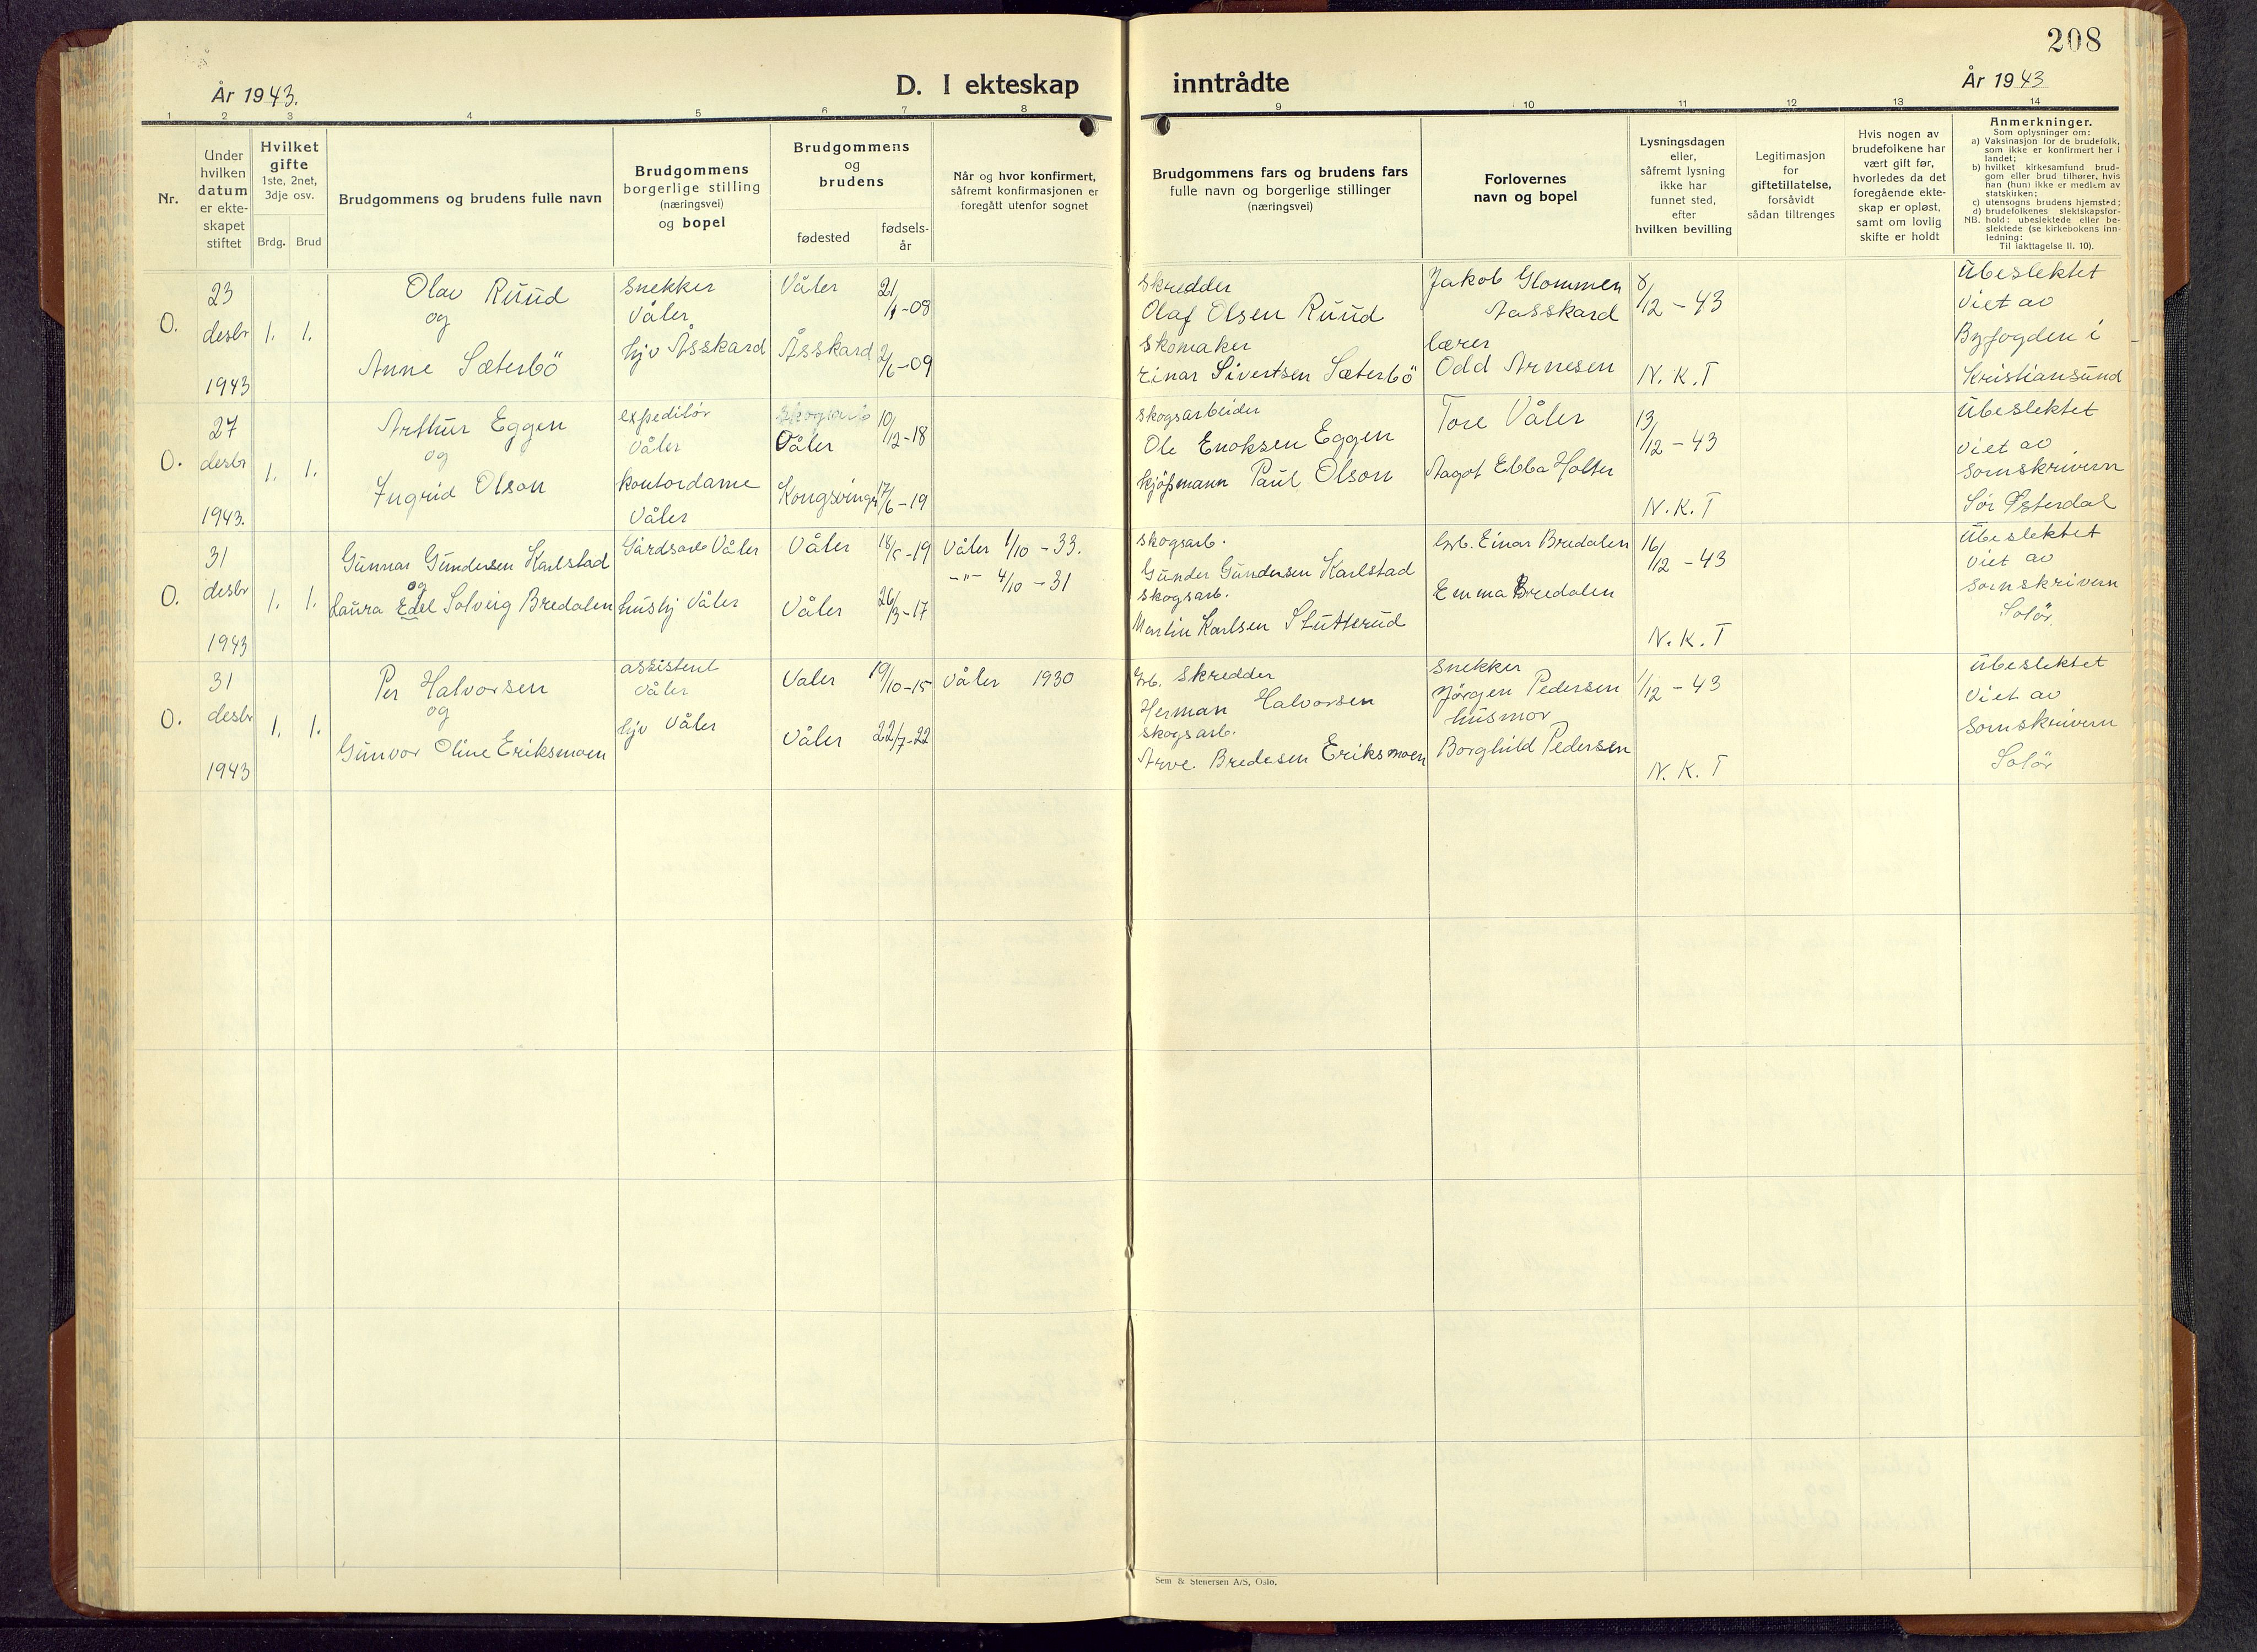 208
År 1943.
D. I ekteskap inntrådte
År 1943
1 2 3 4 5 6 7 8 9 10 11 12 13 14
Nr.
Under
hvilken
datum
er ekte-
skapet
stiftet
Hvilket
gifte
1ste, 2net,
3dje osv.
Brdg. Brud
Brudgommens og brudens fulle navn
Brudgommens
borgerlige stilling
(næringsvei)
og bopel
Brudgommens
og
brudens
fødested
fødsels-
år
Når og hvor konfirmert,
såfremt konfirmasjonen er
foregått utenfor sognet
Brudgommens fars og brudens fars
fulle navn og borgerlige stillinger
(næringsvei)
Forlovernes
navn og bopel
Lysningsdagen
eller,
såfremt lysning
ikke har
funnet sted,
efter
hvilken bevilling
Legitimasjon
for
giftetillatelse,
forsåvidt
sådan tiltrenges
Hvis nogen av
brudefolkene har
vært gift før,
hvorledes da det
foregående ekte-
skap er opløst,
samt om lovlig
skifte er holdt
Anmerkninger.
Som oplysninger om:
a) Vaksinasjon for de brudefolk,
som ikke er konfirmert her i
landet;
b) hvilket kirkesamfund brud-
gom eller brud tilhører, hvis
han (hun) ikke er medlem av
statskirken;
c) utensogns brudens hjemsted;
d) brudefolkenes slektskapsfor-
NB. hold: ubeslektede eller be-
slektede (se kirkebokens inn-
ledning:
Til iakttagelse II. 10).
0.
23
desbr
1943
1. 1.
Olav Ruud
og
Anne Sæterbö
snekker
Våler
hjv Åsskard
Våler 21/1-08
Åsskard 2/6-09
Skredder
Olaf Olsen Ruud
Skomaker
Einar Sivertsen Sæterbö
Jakob Glommen
Aasskard
lærer
Odd Arnesen
8/12 - 43
N. K. T
Ubeslektet
viet av
Byfogden i
Kristiansund
0.
27
desbr
1943.
1. 1.
Arthur Eggen
og
Ingrid Olson
expeditör
Våler
kontordame
Våler
skogsarb
Våler 10/12-18
Kongsvinger 17/6-19
skogsarbeider
Ole Enoksen Eggen
kjöpmann Paul Olson
Tore Våler
Aagot Ebba Holter
13/12 - 43
N. K. T
Ubeslektet
viet av
Sornskrivern
Sör Østerdal
0.
31
desbr
1943
1. 1.
Gunnar Gundersen Karlstad
og
Laura Edel Solveig Bredalen
Gårdsarb Våler
hushj Våler
Våler 18/5-19
Våler 26/3-17
Våler 1/10 - 33.
-"- 4/10 - 31
skogsarb.
Gunder Gundersen Karlstad
skogsarb.
Martin Karlsen Stutterud
Grb. Einar Bredalen
Emma Bredalen
16/12 - 43
N. K. T
Ubeslektet
viet av
Sornskrivern
Solör
0.
31
desbr
1943
1. 1.
Per Halvorsen
og
Gunvor Oline Eriksmoen
assistent
Våler
hjv Våler
Valer 19/10-15
Våler 22/7-22
Våler 1930
Grb. Skredder
Herman Halvorsen
skogsarb.
Arve Bredesen Eriksmoen
snekker
Jörgen Pedersen
husmor
Borghild Pedersen
1/12 - 43
N. K. T
Ubeslektet
viet av
Sornskrivern
Solör
Sem & Stenersen A/S, Oslo.